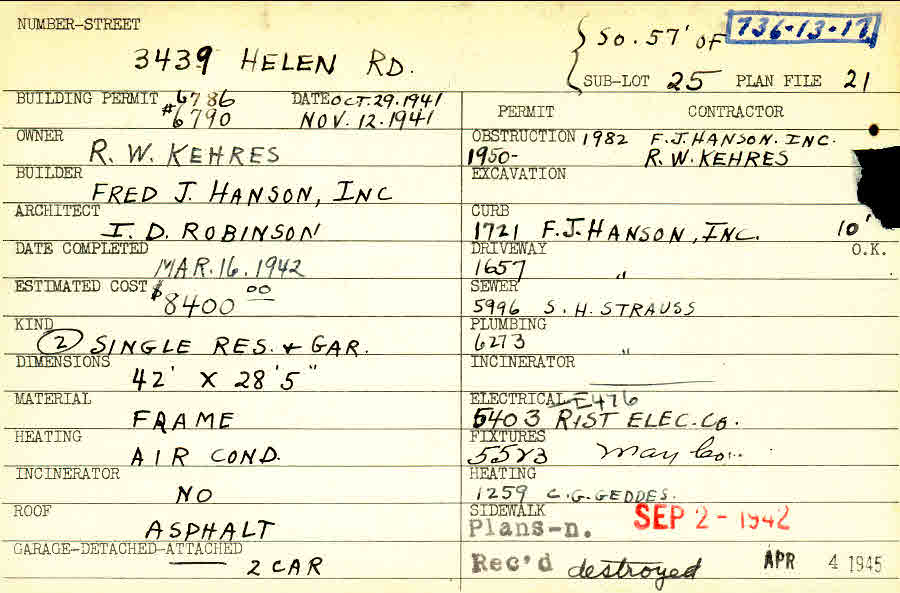 NUMBER-STREET
3439 HELEN RD.
So. 57' OF 736-13-17
SUB-LOT 25 PLAN FILE 21
BUILDING PERMIT 6786 DATE OCT. 29. 1941
#6790 NOV. 12. 1941
OWNER
R. W. KEHRES
BUILDER
FRED J. HANSON, INC
ARCHITECT
I. D. ROBINSON
DATE COMPLETED
MAR. 16. 1942
ESTIMATED COST
$8400 00
KIND
2 SINGLE RES. + GAR.
DIMENSIONS
42' X 28'5"
MATERIAL
FRAME
HEATING
AIR COND.
INCINERATOR
NO
ROOF
ASPHALT
GARAGE-DETACHED-ATTACHED
2 CAR
PERMIT CONTRACTOR
OBSTRUCTION 1982 F.J. HANSON. INC.
1950- R. W. KEHRES
EXCAVATION
CURB
1721 F.J. HANSON, INC. 10'
DRIVEWAY O.K.
1657 "
SEWER
5996 S. H. STRAUSS
PLUMBING
6273 "
INCINERATOR
ELECTRICAL-E476
5403 RIST ELEC. CO.
FIXTURES
5523 May Co.
HEATING
1259 C. G. GEDDES.
SIDEWALK
Plans-n. SEP 2 - 1942
Rec'd destroyed APR 4 1945